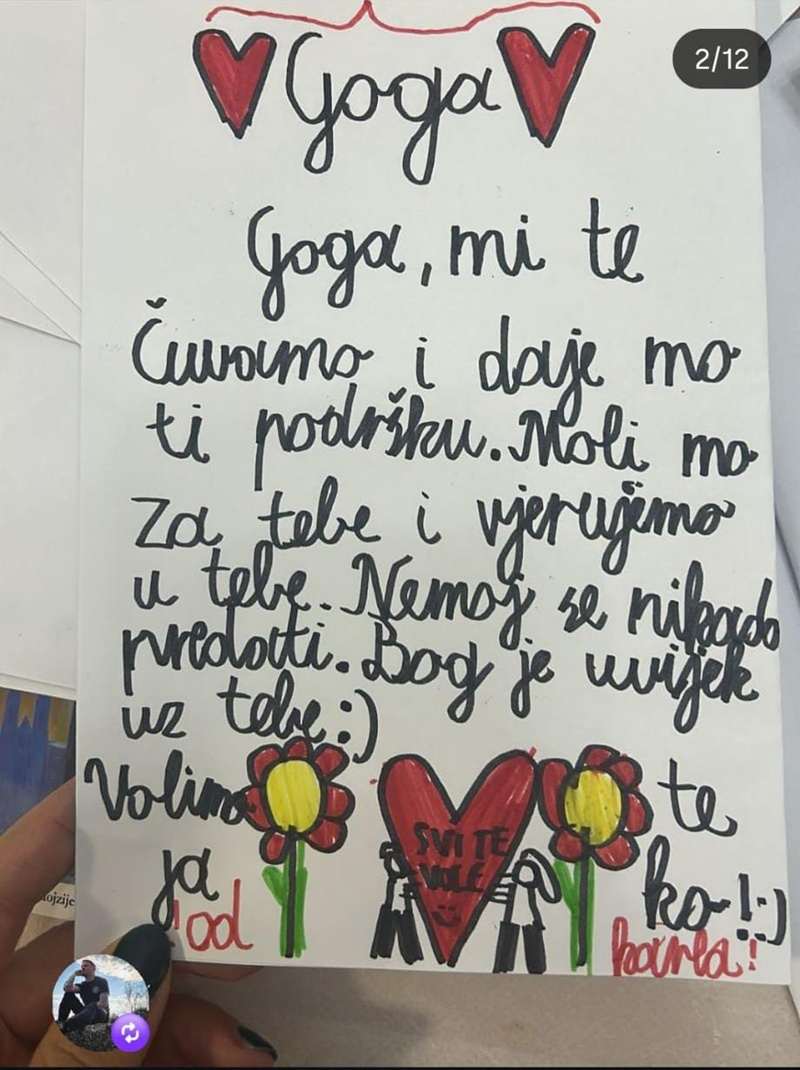 2/12
Goga
Goga, mi te
Čuvamo i daje mo
ti podršku. Moli mo
za tebe i vjerujemo
u tebe. Nemoj se nikada
predati. Bog je uvijek
uz tebe :)
Volimo te
SVI TE
VOLE
ja ko !:)
! od karla!
ojzije